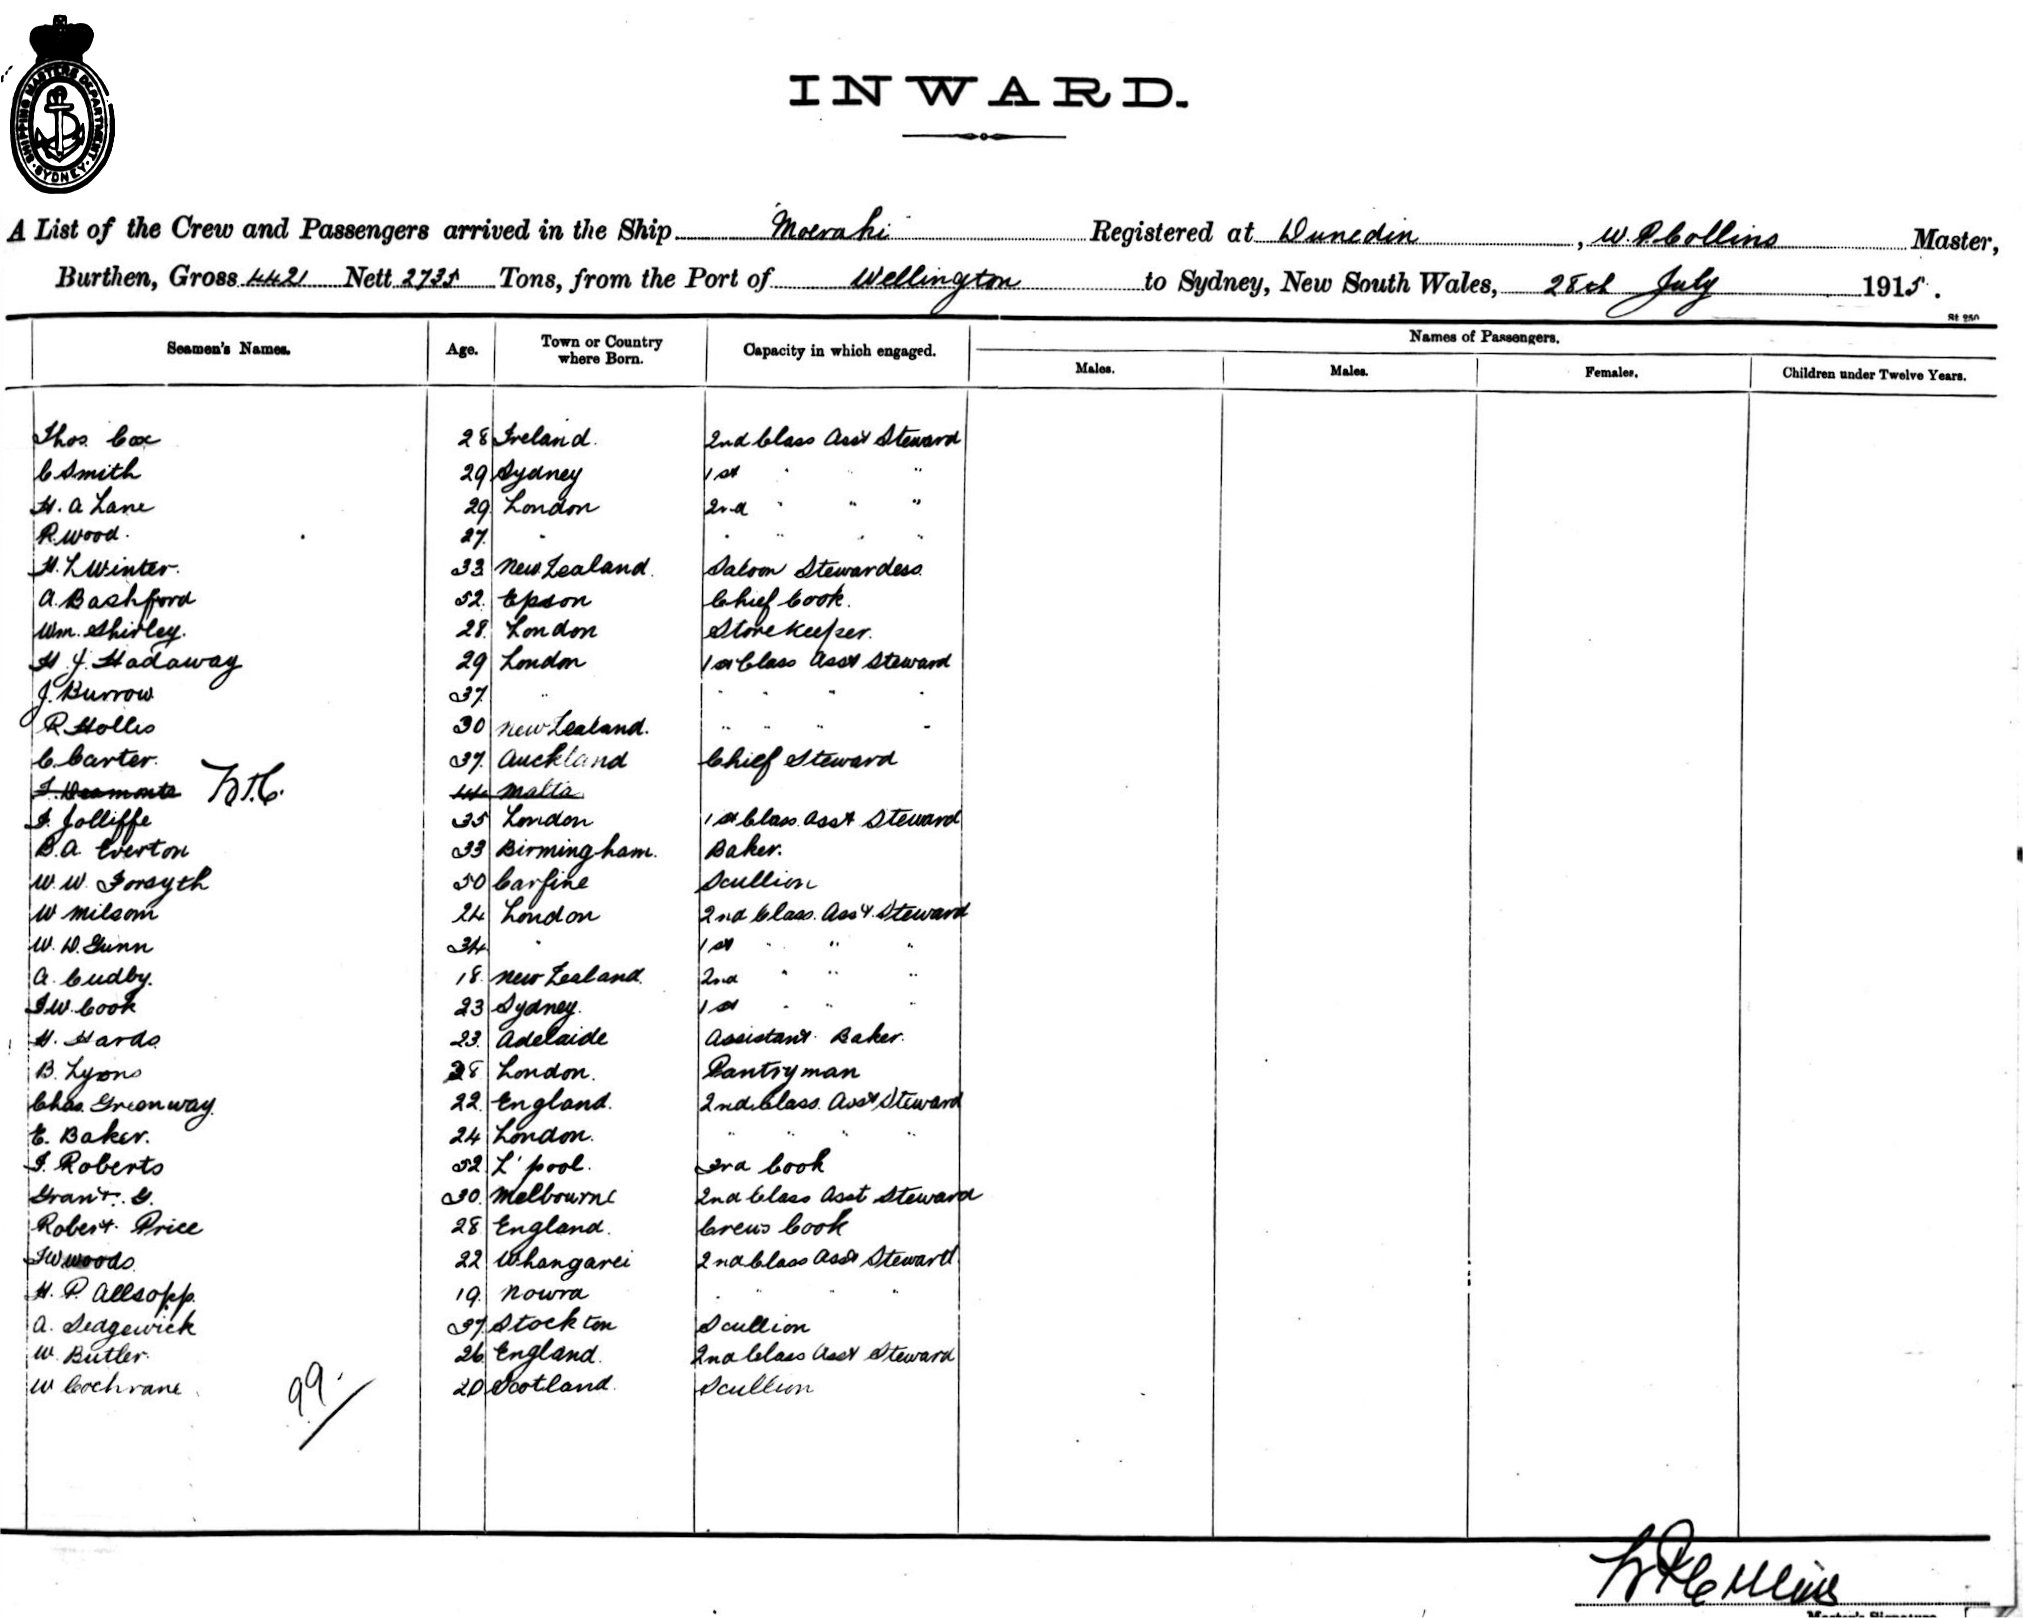 SHIPPING MASTERS DEPARTMENT SYDNEY
INWARD.
A List of the Crew and Passengers arrived in the Ship Moeraki Registered at Dunedin, W. P. Collins Master,
Burthen, Gross 4421 Nett 2735 Tons, from the Port of Wellington to Sydney, New South Wales, 28th July 1915.
St 250
Seamen's Names. Age. Town or Country where Born. Capacity in which engaged. Names of Passengers.
Males. Males. Females. Children under Twelve Years.
Thos. Cox 28 Ireland. 2nd Class Asst Steward
C Smith 29 Sydney 1st " " "
H. A Lane 29 London 2nd " " "
R. Wood. 27 " " " " "
H. L Winter. 33 New Zealand. Saloon Stewardess
A. Bashford 52. Epson Chief Cook.
Wm. Shirley. 28. London Storekeeper.
H. J. Hadaway 29 London 1st Class Asst Steward
J. Burrow 37. " " " " "
R. Hollis 30 New Zealand. " " " "
C. Carter. 37. Auckland Chief Steward
44 Malta
J. Jolliffe 35 London 1st Class. Asst Steward
B. A. Everton 33 Birmingham. Baker.
W. W. Forsyth 50 Carfine Scullion
W Milsom 24 London 2nd Class. Asst. Steward
W. D. Gunn 34 " 1st " " "
A. Cudby. 18. New Zealand. 2nd " " "
J W. Cook 23 Sydney. 1st " " "
H. Hards 23. Adelaide Assistant Baker.
B. Lyons 28 London. Pantryman
Chas. Greenway. 22. England. 2nd Class. Asst Steward
E. Baker. 24 London. " " " "
J. Roberts 52 L'pool. 3rd Cook
Grant. G. 30. Melbourne 2nd Class Asst Steward
Robert Price 28 England. Crews Cook
J W Woods. 22 Whangarei 2nd Class Asst Steward
H. P. Allsopp. 19. Nowra " " " "
A. Sedgewick 37. Stockton Scullion
W. Butler. 26 England. 2nd Class Asst Steward
W Cochrane 20 Scotland. Scullion
99.
W P Collins
Master's Signature